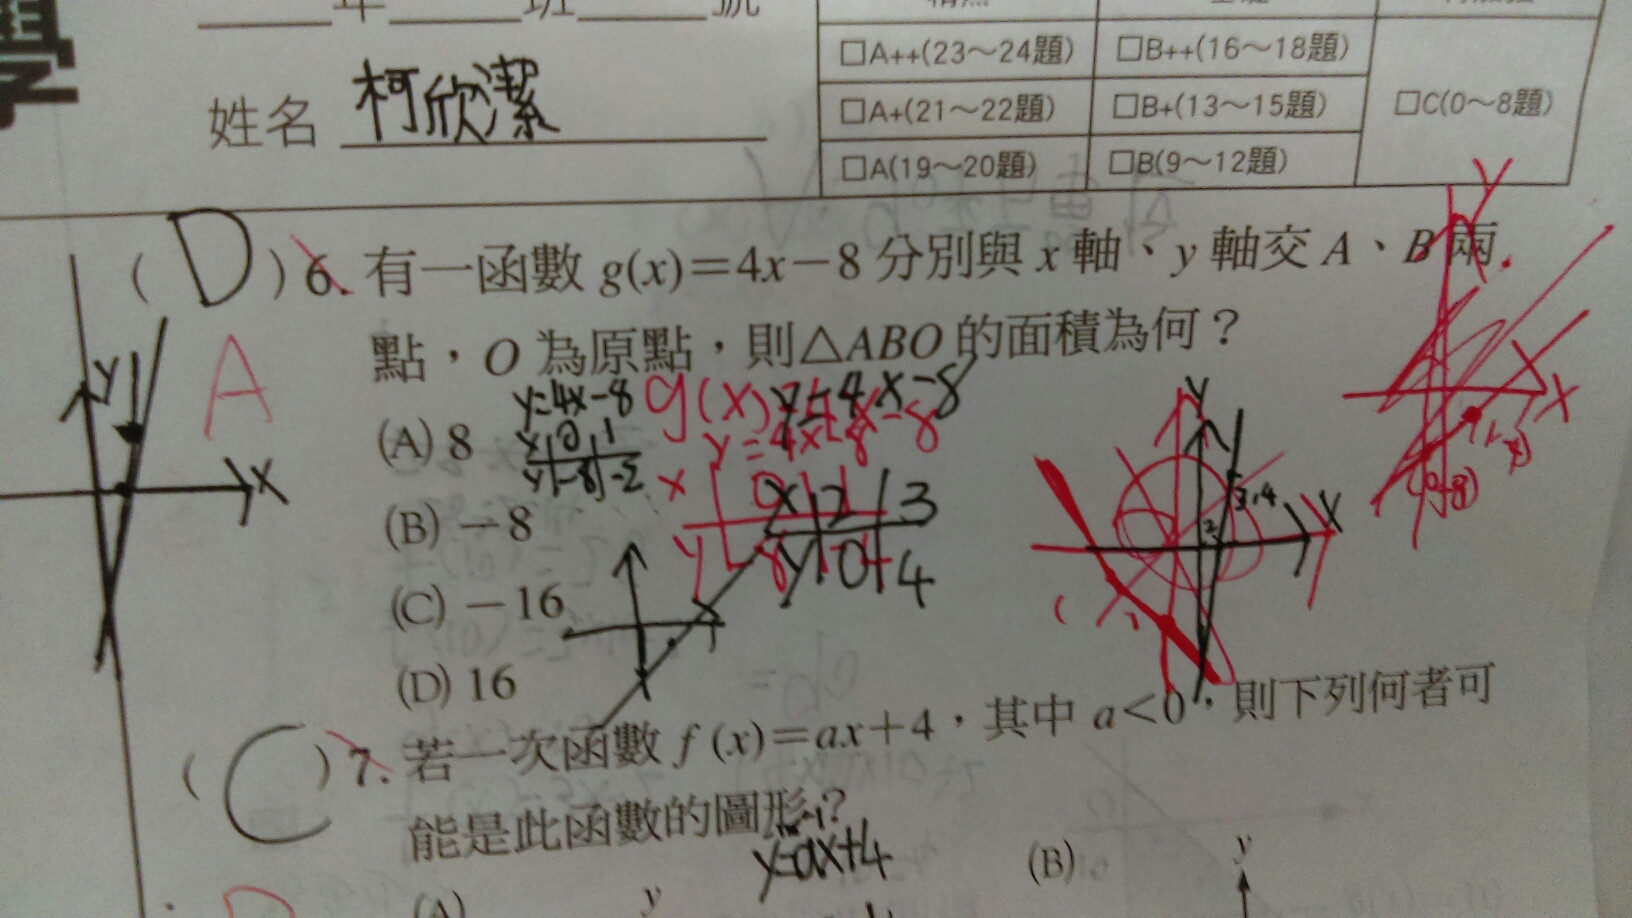 年 班 號
姓名 柯欣潔
□A++(23～24題) □B++(16～18題)
□A+(21～22題) □B+(13～15題) □C(0～8題)
□A(19～20題) □B(9～12題)
(D) 6. 有一函數 g(x)=4x－8 分別與 x 軸、y 軸交 A、B 兩
點，O 為原點，則△ABO 的面積為何？
A
y=4x-8
x 0 1
y -8 -2
g(x)
y=4x-8
y=4x-8
x 2 3
y 0 4
(A) 8
(B) －8
(C) －16
(D) 16
y
x
y
x
3,4
2
y
x
x
(C) 7. 若一次函數 f (x)=ax+4，其中 a<0，則下列何者可
能是此函數的圖形？
y=ax+4
(A)
y
(B)
y